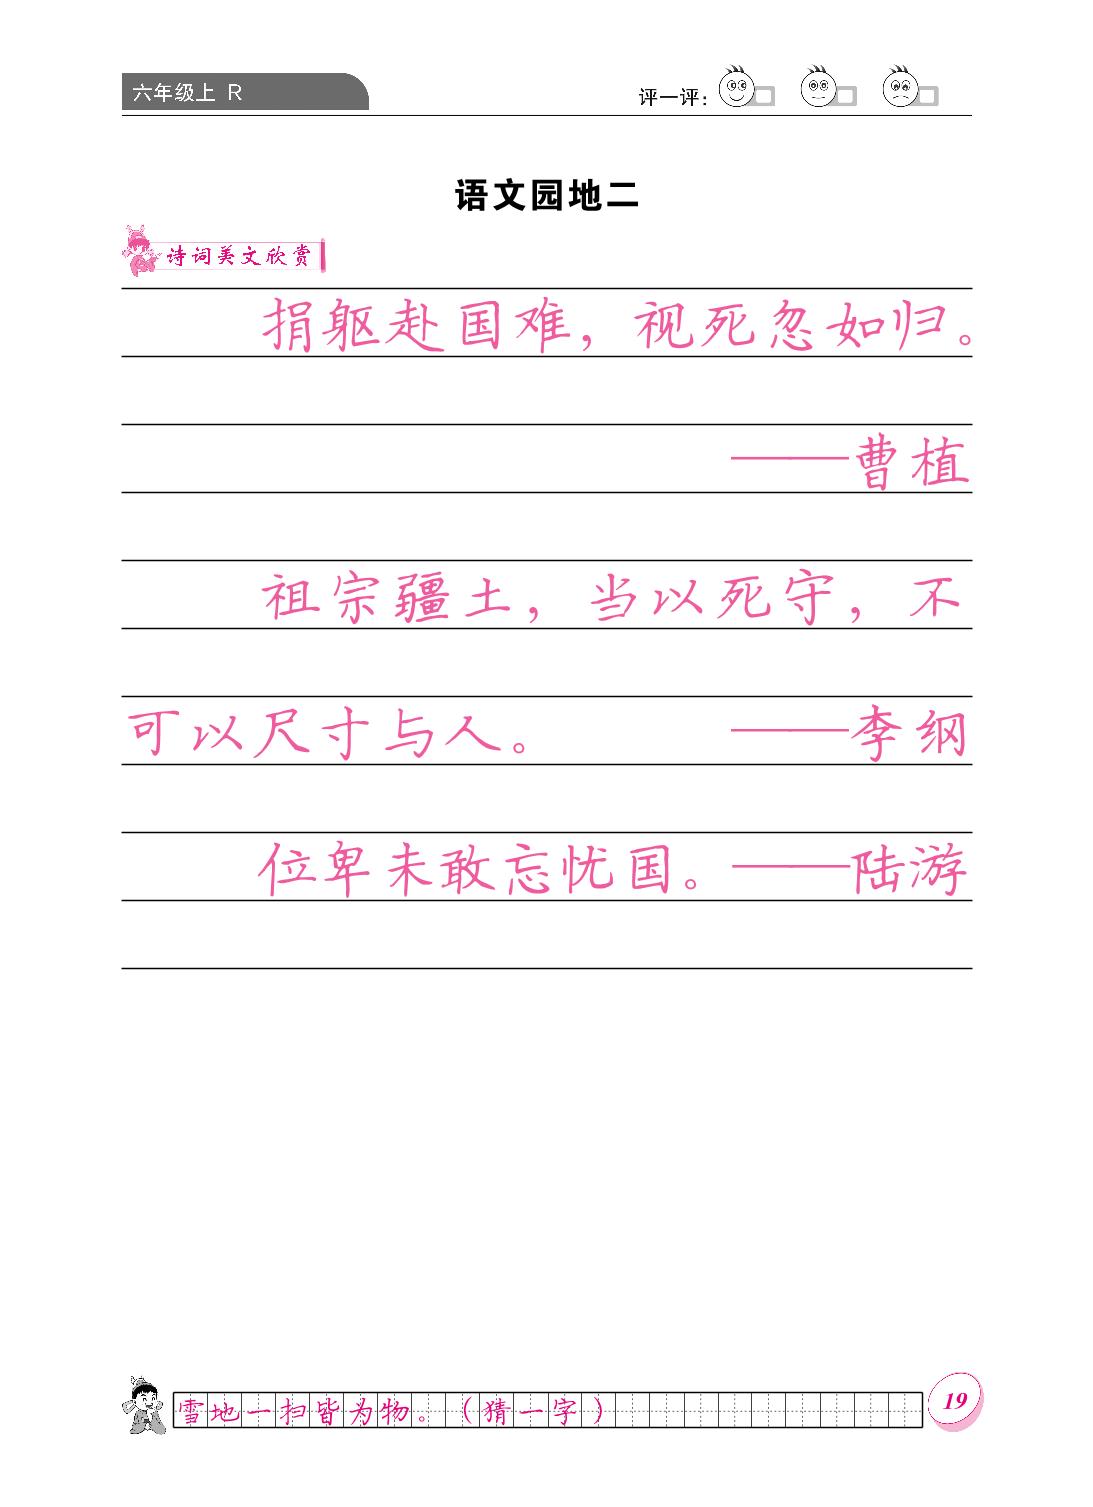 六年级上 R
评一评：
语文园地二
诗词美文欣赏
捐躯赴国难，视死忽如归。
——曹植
祖宗疆土，当以死守，不
可以尺寸与人。 ——李纲
位卑未敢忘忧国。——陆游
雪地一扫皆为物。（猜一字）
19